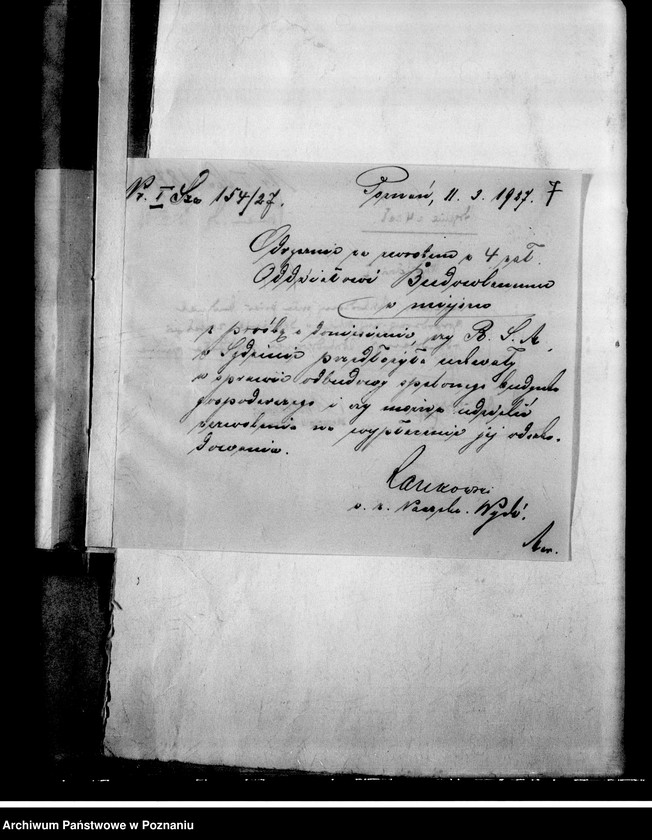 Nr. I Szo 154/27.
Poznań, 11. 3. 1927. 7
Odręcznie za zwrotem z 4 zał.
Oddziałowi Budowlanemu
w miejscu
z prośbą o doniesienie, czy R. S. A.
w przedłożyła uchwały
w sprawie odbudowy spalonego budynku
gospodarczego i czy można udzielić
zezwolenia na wypłacenie jej odszko-
dowania.
w. z. Naczeln. Wydz.
Archiwum Państwowe w Poznaniu